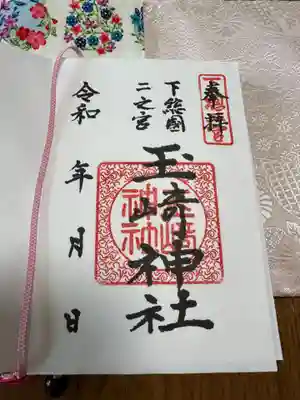 奉拝
下総國
二之宮
玉﨑神社
令和 年 月 日
玉﨑
神社